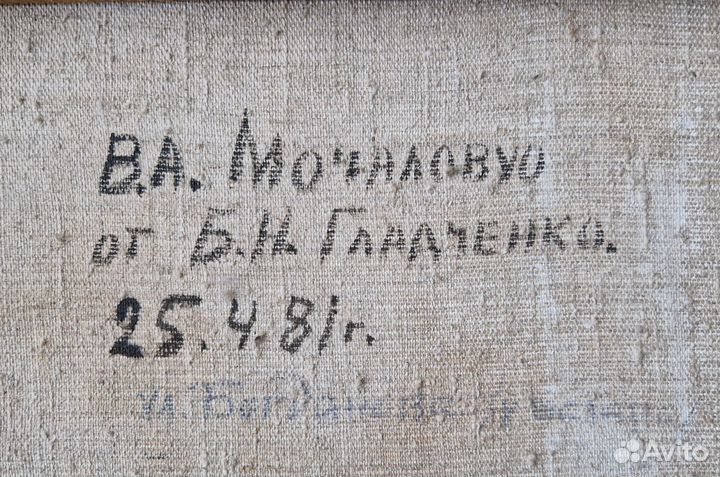 В.А. Мочаловуо
от Б.Н. Гладченко.
25.4.81г.
ул.
Avito